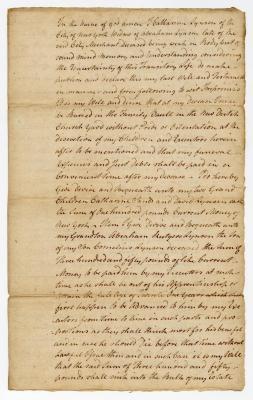 In the name of god amen I Catharine Lynsen of the
City of New York Widow of Abraham Lynsen late of the
said City Merchant Deceased being weak in Body but of
sound mind memory and Understanding considering
the Uncertainty of this Transitory Life Do make
publish and declare this my last Will and Testament
in manner and form following to wit Imprimis
It is my Will and desire that at my decease I may
be buried in the Family Vault in the New Dutch
Church Yard without Pride or Ostentation at the
discretion of my Children and Executors herein
after to be mentioned and that my funeral
Expences and Just Debts shall be paid in a
Convenient time after my decease - I do hereby
Give devise and bequeath unto my two Grand
Children Catharine and David Lynsen each
the sum of One hundred pounds Current Money of
New York - Item I Give devise and bequeath unto
my Grandson Abraham Lynsen the Son
of my Son Cornelius Lynsen deceased the sum of
Three hundred and fifty pounds of like Current
Money to be paid him by my Executors at such
time as he shall be out of his Apprenticeship or
attain the full Age of Twenty One Years which shall
first happen to be advanced to him by my Exe
cutors from time to time in such parts and pro
portions as they shall think most for his benefit
and in case he should Die before that time without
Lawful Issue then and in such case it is my Will
that the said sum of three hundred and fifty
pounds shall sink into the Bulk of my Estate